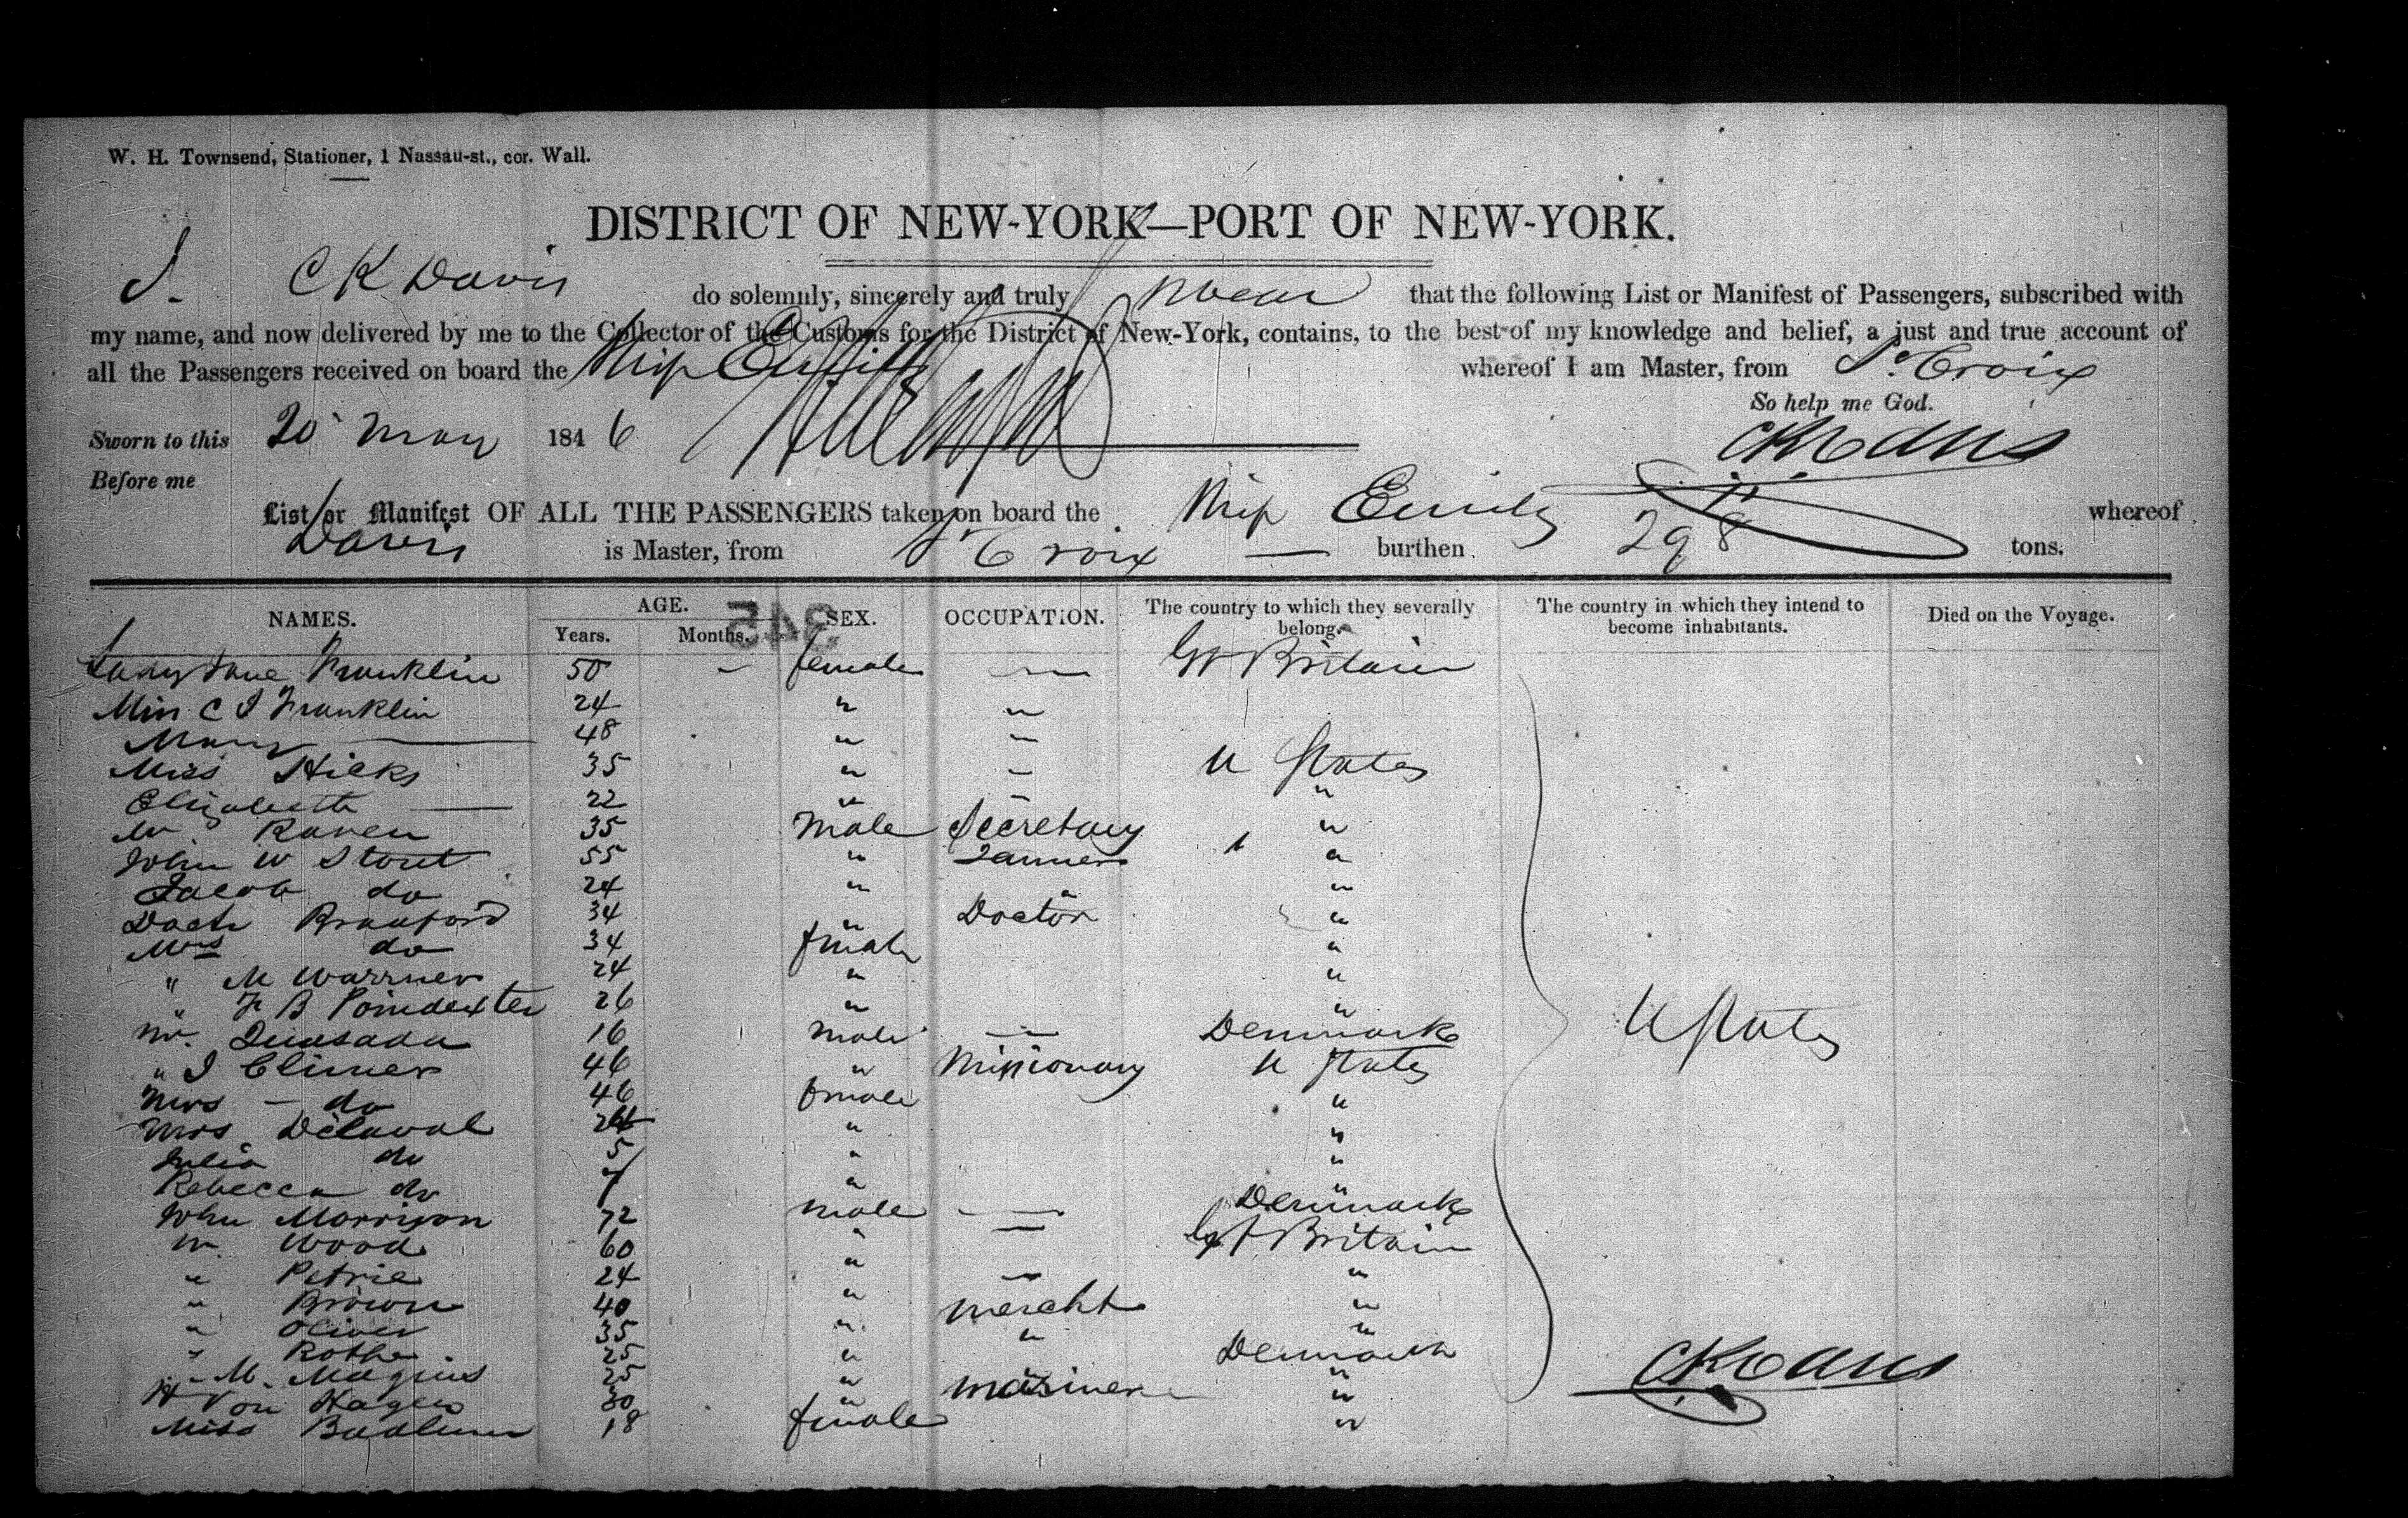 W. H. Townsend, Stationer, 1 Nassau-st., cor. Wall.
DISTRICT OF NEW-YORK—PORT OF NEW-YORK.
I. C K Davis do solemnly, sincerely and truly swear that the following List or Manifest of Passengers, subscribed with
my name, and now delivered by me to the Collector of the Customs for the District of New-York, contains, to the best of my knowledge and belief, a just and true account of
all the Passengers received on board the Ship Emily whereof I am Master, from St Croix
So help me God.
Sworn to this 20 May 1846 CK Davis
Before me
List or Manifest OF ALL THE PASSENGERS taken on board the Ship Emily whereof
Davis is Master, from St Croix — burthen 298 tons.
NAMES. AGE. Years. Months. SEX. OCCUPATION. The country to which they severally belong. The country in which they intend to become inhabitants. Died on the Voyage.
345
Lady Jane Franklin 50 — female — Gt Britain
Miss C J Franklin 24 " "
Mary — 48 " —
Miss Hicks 35 " — U States
Elizabeth — 22 " — "
Mr Raven 35 Male Secretary "
John W Stout 55 " Tanner "
Jacob do 24 " " "
Doctr Bradford 34 " Doctor "
Mrs do 34 female "
" M Warrner 24 " "
" F B Poindexter 26 " "
Mr. Quesada 16 Male — Denmark U States
" J Climer 46 " Missionary U States
Mrs — do 46 female "
Mrs Delaval 24 " "
Julia do 5 " "
Rebecca do 7 " "
John Morrison 72 male — Denmark
Mr Wood 60 " — Gt Britain
" Petrie 24 " — "
" Brown 40 " mercht "
" Oliver 35 " " "
" Rothe 25 " Denmark
" M. 25 " " "
H Von Hagen 30 " mariner "
Miss 18 female "
CK Davis